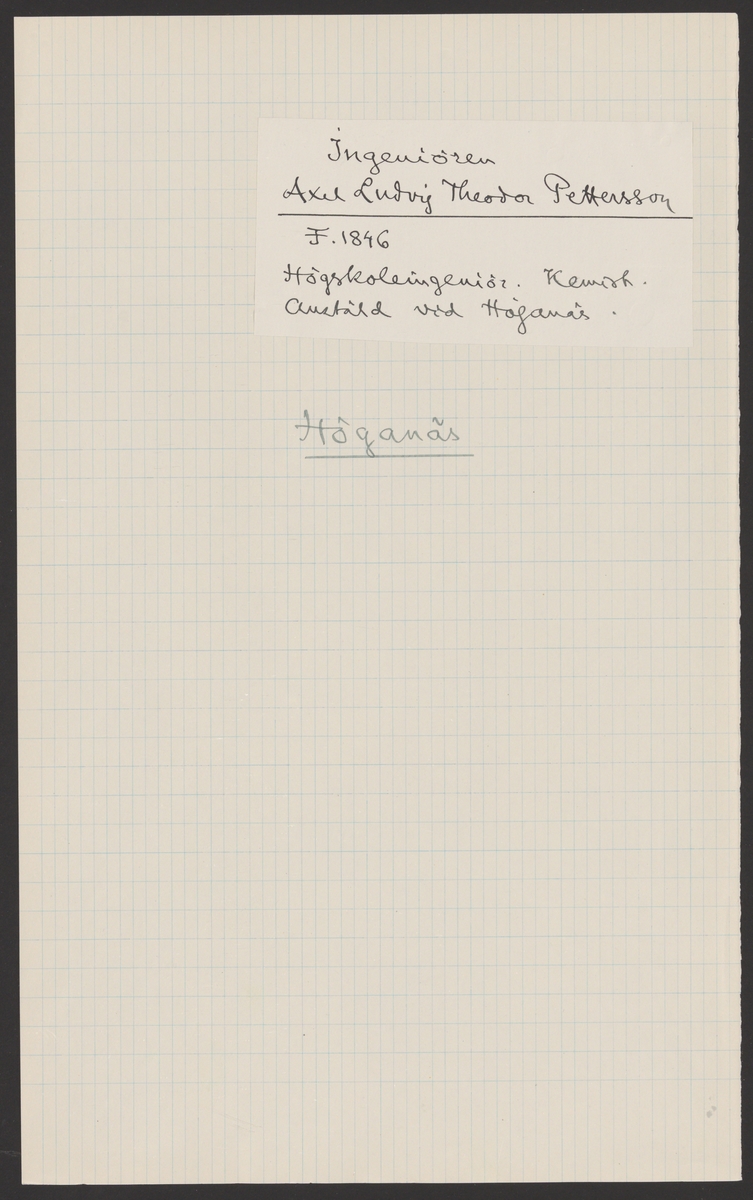 Ingeniören
Axel Ludvig Theodor Pettersson
F. 1846
Högskoleingeniör. Kemisk.
Anstäld vid Höganäs.
Höganäs